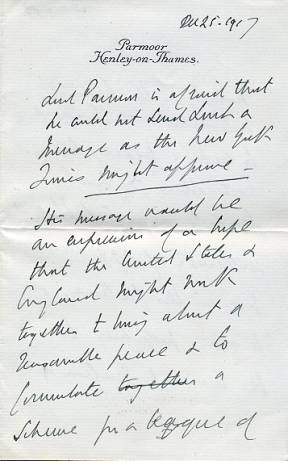 Dec 25 - 1917
Parmoor
Henley-on-Thames.
Lord Parmoor is afraid that
he could not send such a
message as the New York
Times might approve -
His message would be
an expression of a hope
that the United States &
England might work
together to bring about a
reasonable peace & to
formulate together a
scheme for a League of